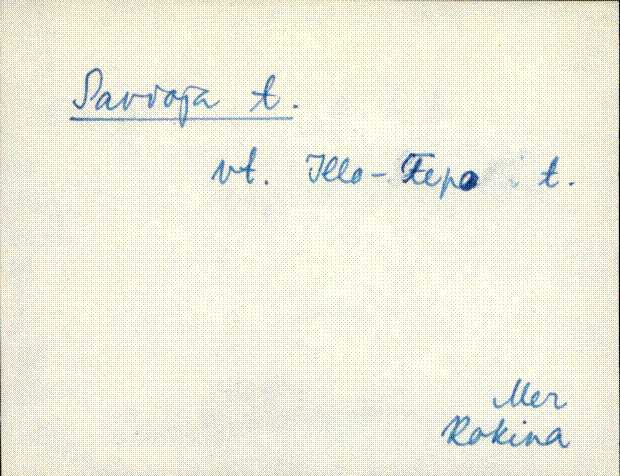 Savioja t.
vt. Illo-Tepo t.
Mer
Rokina